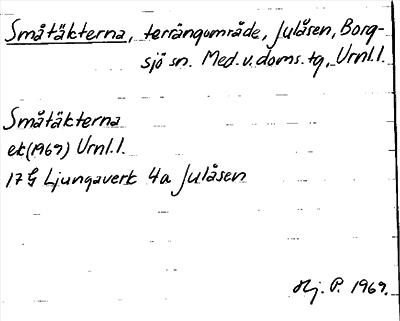 Småtäkterna, terrängområde, Julåsen, Borg-
sjö sn. Med. v. doms. tg, Urnl. l.
Småtäkterna
ek (1969) Urnl. l.
17 G Ljungaverk 4a Julåsen
Hj. P. 1969.